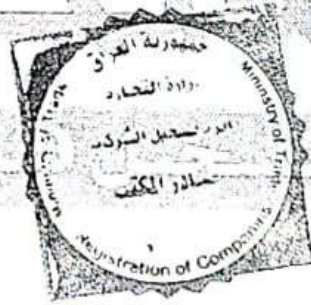 جمهورية العراق
وزارة التجارة
دائرة تسجيل الشركات
صادر المكتب
Ministry of Trade
Registration of Companies